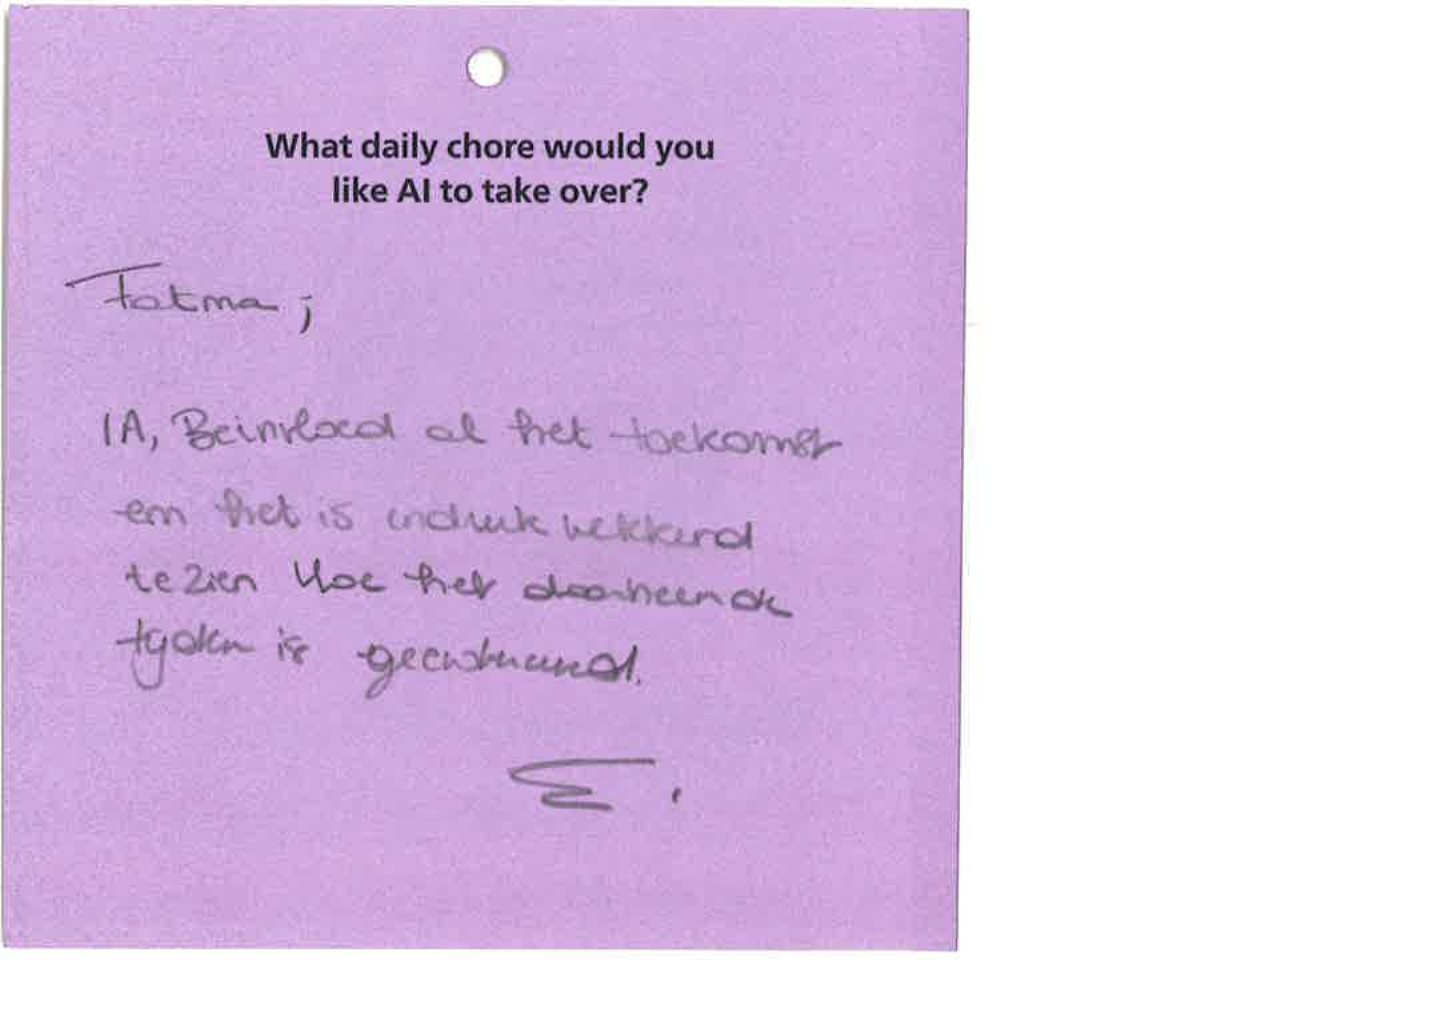 What daily chore would you
like AI to take over?
Fatma ;
IA, Beinvloed al het toekomst
en het is indruk wekkend
te zien Hoe het doorheen de
tyden is geëvolueerd.